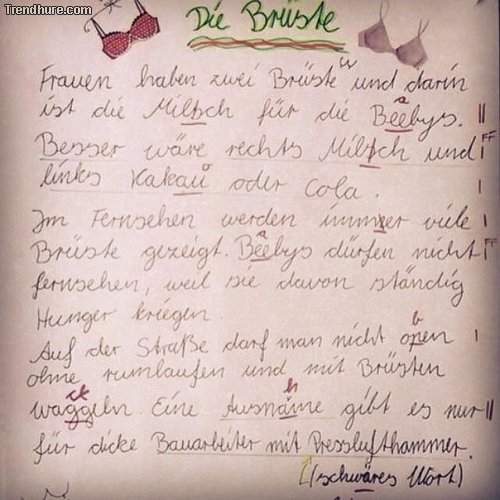 Trendhure.com
Die Brüste
Frauen haben zwei Brüste und darin
ist die Miltsch für die Beebys.
Besser wäre rechts Miltsch und
links Kakau oder Cola.
Im Fernsehen werden immer viele
Brüste gezeigt. Beebys dürfen nicht
fernsehen, weil sie davon ständig
Hunger kriegen.
Auf der Straße darf man nicht open
ohne rumlaufen und mit Brüsten
waggeln. Eine Ausnäme gibt es nur
für dicke Bauarbeiter mit Presslufthammer.
(schwäres Wort)